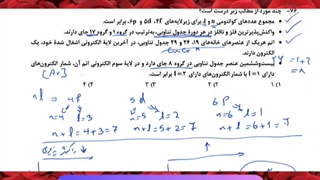 ۷۶- چند مورد از مطالب زیر درست است؟
• مجموع عددهای کوانتومی n و l برای زیرلایه‌های ۴f، ۵d و ۶p، برابر است.
• واکنش‌پذیرترین فلز و نافلز در هر دورهٔ جدول تناوبی، به‌ترتیب در گروه ۱ و گروه ۱۷ جای دارند.
• اتم هریک از عنصرهای خانه‌های ۱۹، ۲۴ و ۲۹ جدول تناوبی، در آخرین لایهٔ الکترونی اشغال شدهٔ خود، یک الکترون دارند.
بیست‌وششمین عنصر جدول تناوبی در گروه ۸ جای دارد و در لایهٔ سوم الکترونی اتم آن، شمار الکترون‌های دارای l = 1 با شمار الکترون‌های دارای l = 2 برابر است.
۱) ۱ ۲) ۲ ۳) ۳ ۴) ۴
[Ar]
nl 4f 5d 6p
n=4 l=3 n=5 l=2 n=6 l=1
n+l=4+3=7 n+l=5+2=7 n+l=6+1=7